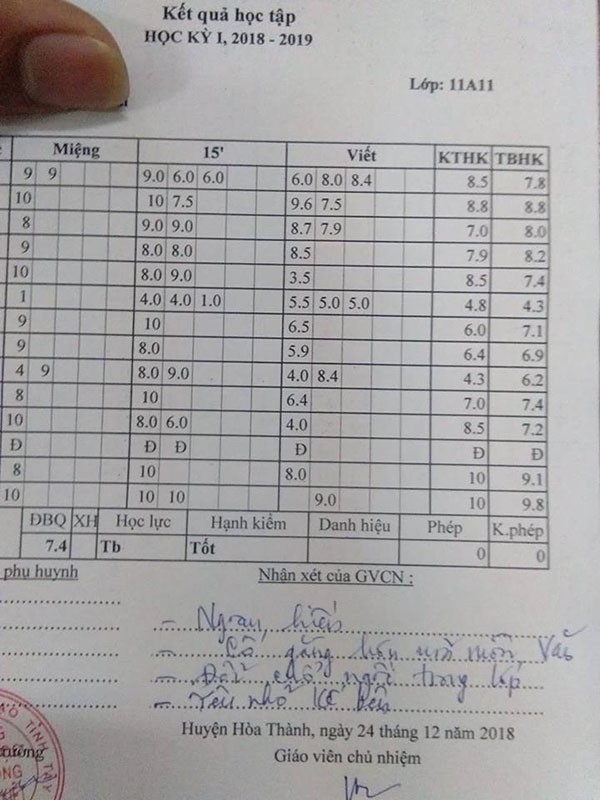 Kết quả học tập
HỌC KỲ I, 2018 - 2019
Lớp: 11A11
Miệng 15' Viết KTHK TBHK
9 9 9.0 6.0 6.0 6.0 8.0 8.4 8.5 7.8
10 10 7.5 9.6 7.5 8.8 8.8
8 9.0 9.0 8.7 7.9 7.0 8.0
9 8.0 8.0 8.5 7.9 8.2
10 8.0 9.0 3.5 8.5 7.4
1 4.0 4.0 1.0 5.5 5.0 5.0 4.8 4.3
9 10 6.5 6.0 7.1
9 8.0 5.9 6.4 6.9
4 9 8.0 9.0 4.0 8.4 4.3 6.2
8 10 6.4 7.0 7.4
10 8.0 6.0 4.0 8.5 7.2
Đ Đ Đ Đ Đ Đ
8 10 8.0 10 9.1
10 10 10 9.0 10 9.8
ĐBQ XH Học lực Hạnh kiểm Danh hiệu Phép K.phép
7.4 Tb Tốt 0 0
phụ huynh Nhận xét của GVCN :
- Ngoan, hiền
- Cố gắng hơn với môn Văn
- Đổi chỗ ngồi trong lớp
- Yêu nhỏ kế bên
Huyện Hòa Thành, ngày 24 tháng 12 năm 2018
Giáo viên chủ nhiệm